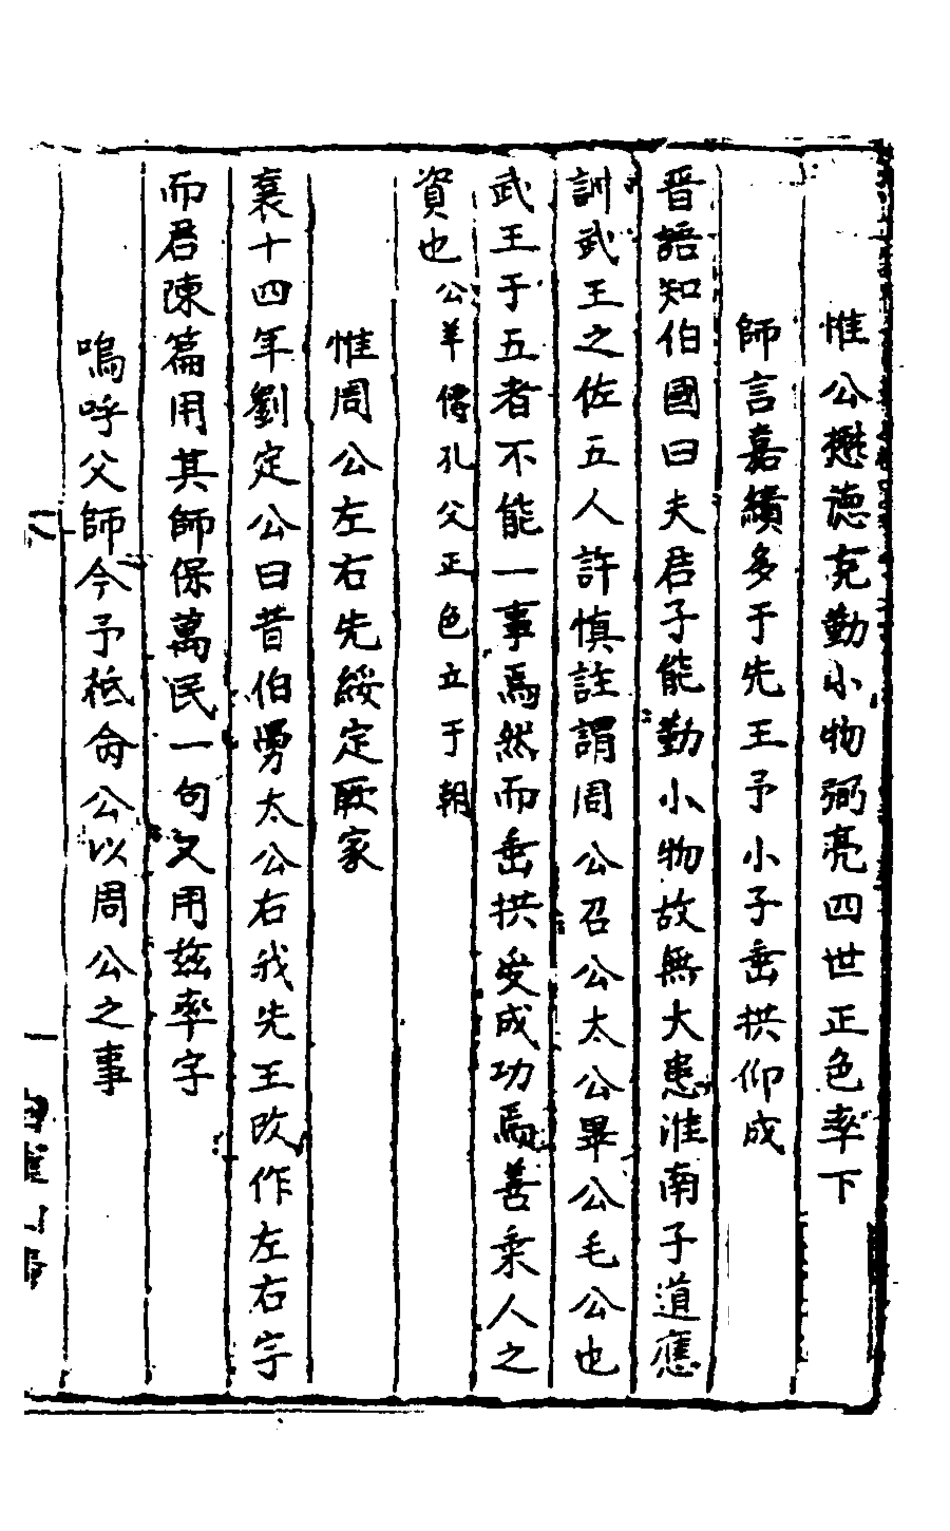 惟公懋德克勤小物弼亮四世正色率下
師言嘉績多于先王予小子垂拱仰成
晋語知伯國曰夫君子能勤小物故無大患淮南子道應
訓武王之佐五人許慎註謂周公召公太公畢公毛公也
武王于五者不能一事焉然而垂拱受成功焉善乘人之
資也公羊傳孔父正色立于朝
惟周公左右先綏定厥家
襄十四年劉定公曰昔伯舅太公右我先王改作左右字
而君陳篇用其師保萬民一句又用兹率字
嗚呼父師今予祗命公以周公之事